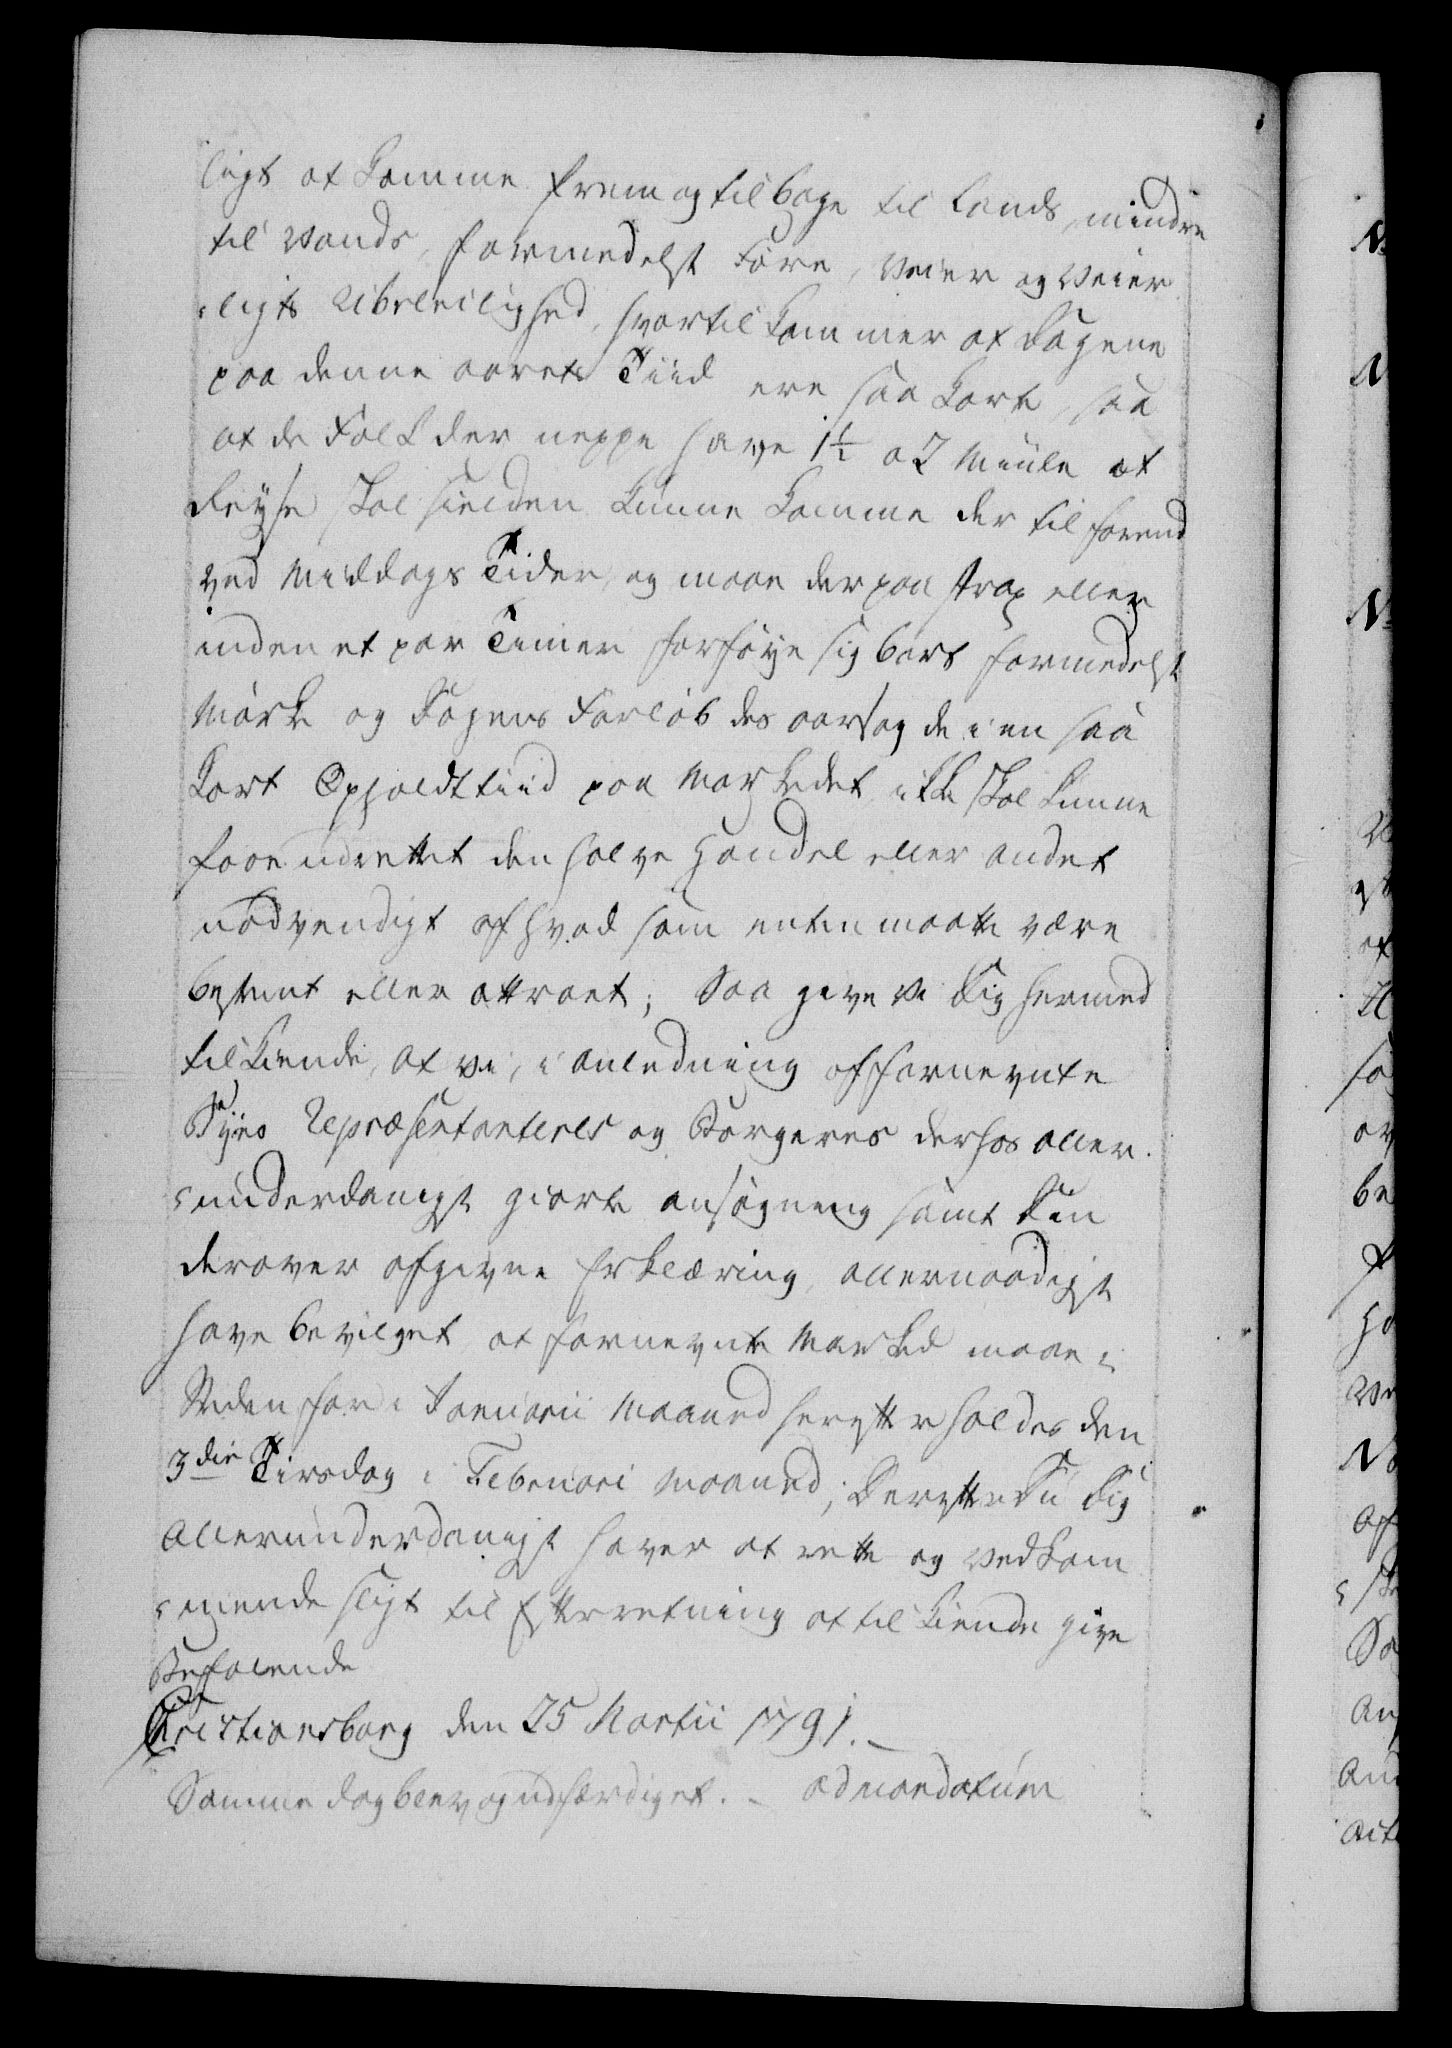 ligt at komme frem og tilbage til lands, mindre
til vands, formedelst Føre, veier og veier
ligts Ubeleilighed, hvortil kommer at dagene
paa denne aarets Tiid ere saa korte, saa
at de Folk der neppe have 1½ a 2 Miile at
Reyse skal sielden kunne komme der til forend
ved Middags Tider, og maae der paa strax eller
inden et par Timer forføye sig bort formedelst
Mørke og Dagens Forløb des aarsag de i en saa
kort Opholdttiid paa Markedet ikke skal kunne
faae udrettet den halve Handel eller andet
nødvendigt af hvad som enten maatte være
bestemt eller attraaet; Saa give Vi Dig hermed
tilkiende, at vi, i Anledning af fornevnte
Byes Repræsentanteres og Borgeres derhos aller
underdanigst giorte ansøgning samt Din
derover afgivne Erklæring, allernaadigst
have bevilget at fornevnte Marked maae i
Steden for i Januarii Maaned herefter holdes den
3die Tirsdag i Februari Maaned; Derefter Du Dig
Allerunderdanigst haver at rette og vedkom
mende sligt til Efterretning at tilkiende give
Befalende
Christiansborg den 25 Martii 1791.
Samme dag blev og udfærdiget. ad mandatum